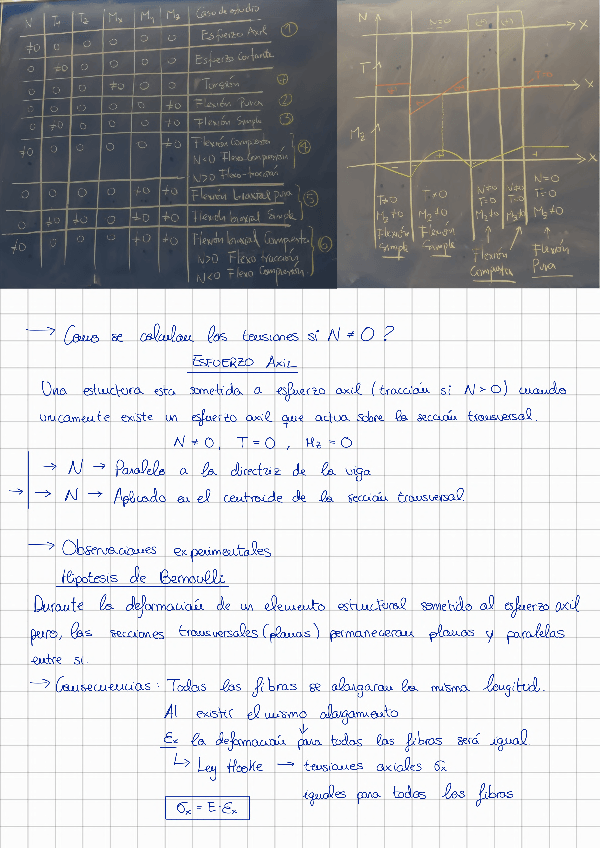 N Ty Tz Mx My Mz Caso de estudio
≠0 0 0 0 0 0 Esfuerzo Axil 1
0 ≠0 0 0 0 0 Esfuerzo Cortante
0 0 0 ≠0 0 0 Torsión 7
0 0 0 0 0 ≠0 Flexión Pura 2
0 ≠0 0 0 0 ≠0 Flexión Simple 3
≠0 0 0 0 0 ≠0 Flexión Compuesta 4
N<0 Flexo-Compresión
N>0 Flexo-tracción
0 0 0 0 ≠0 ≠0 Flexión biaxial pura 5
0 ≠0 ≠0 0 ≠0 ≠0 Flexión biaxial Simple
≠0 0 0 0 ≠0 ≠0 Flexión biaxial Compuesta 6
N>0 Flexo tracción
N<0 Flexo Compresión
N N=0 X
T X
Mz X
T≠0 T≠0 N≠0 N≠0 N=0
N=0 T=0 T=0 T=0
Mz≠0 Mz≠0 Mz≠0 Mz≠0 Mz≠0
Flexión Simple
Flexión Simple
Flexión Compuesta
Flexión Pura
→ Como se calculan las tensiones si N ≠ 0 ?
ESFUERZO AXIL
Una estructura esta sometida a esfuerzo axil (tracción si N > 0) cuando
unicamente existe un esfuerzo axil que actua sobre la sección transversal.
N ≠ 0 , T = 0 , Mz = 0
→ N → Paralelo a la directriz de la viga
→ → N → Aplicado en el centroide de la sección transversal
→ Observaciones experimentales
Hipotesis de Bernoulli
Durante la deformación de un elemento estructural sometido al esfuerzo axil
puro, las secciones transversales (planas) permaneceran planas y paralelas
entre si.
→ Consecuencias: Todas las fibras se alargaran la misma longitud.
Al existir el mismo alargamiento
↓
εx la deformación para todas las fibras será igual
↳ Ley Hooke → tensiones axiales σx
iguales para todas las fibras
σx = E·εx